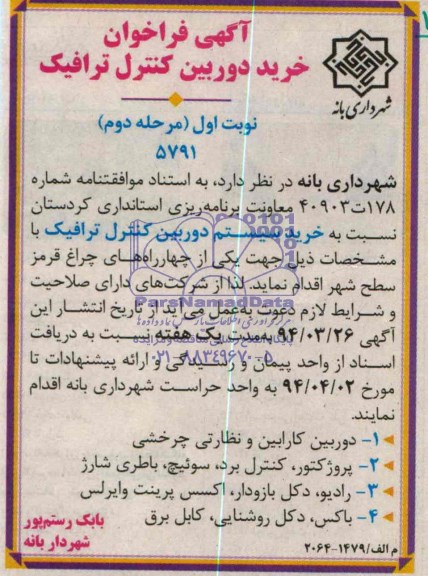 آگهی فراخوان
خرید دوربین کنترل ترافیک
شهرداری بانه
نوبت اول (مرحله دوم)
۵۷۹۱
شهرداری بانه در نظر دارد، به استناد موافقتنامه شماره
۱۷۸ت۴۰۹۰۳ معاونت برنامه‌ریزی استانداری کردستان
نسبت به خرید سیستم دوربین کنترل ترافیک با
مشخصات ذیل جهت یکی از چهارراه‌های چراغ قرمز
سطح شهر اقدام نماید. لذا از شرکت‌های دارای صلاحیت
و شرایط لازم دعوت به‌عمل می‌آید از تاریخ انتشار این
آگهی ۹۴/۰۳/۲۶ به‌مدت یک هفته نسبت به دریافت
اسناد از واحد پیمان و رسیدگی و ارائه پیشنهادات تا
مورخ ۹۴/۰۴/۰۲ به واحد حراست شهرداری بانه اقدام
نمایند.
۱- دوربین کارابین و نظارتی چرخشی
۲- پروژکتور، کنترل برد، سوئیچ، باطری شارژ
۳- رادیو، دکل بازودار، اکسس پرینت وایرلس
۴- باکس، دکل روشنایی، کابل برق
بابک رستم‌پور
شهردار بانه
م الف/۱۴۷۹-۲۰۶۴
ParsNamadData
۰۲۱-۸۸۳۴۹۶۷۰-۵